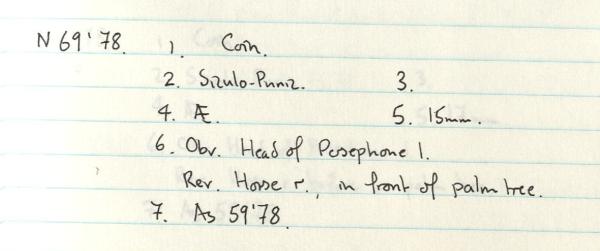 N 69'78. 1. Coin.
2. Sizulo-Punic. 3.
4. Æ. 5. 15mm.
6. Obv. Head of Persephone l.
Rev. Horse r., in front of palm tree.
7. As 59'78.